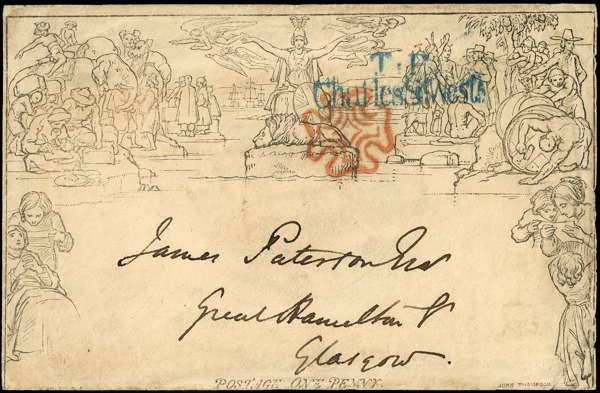 T.P.
Charles St. West
James Paterson Esq
Great Hamilton St
Glasgow.
POSTAGE ONE PENNY.
JOHN THOMPSON